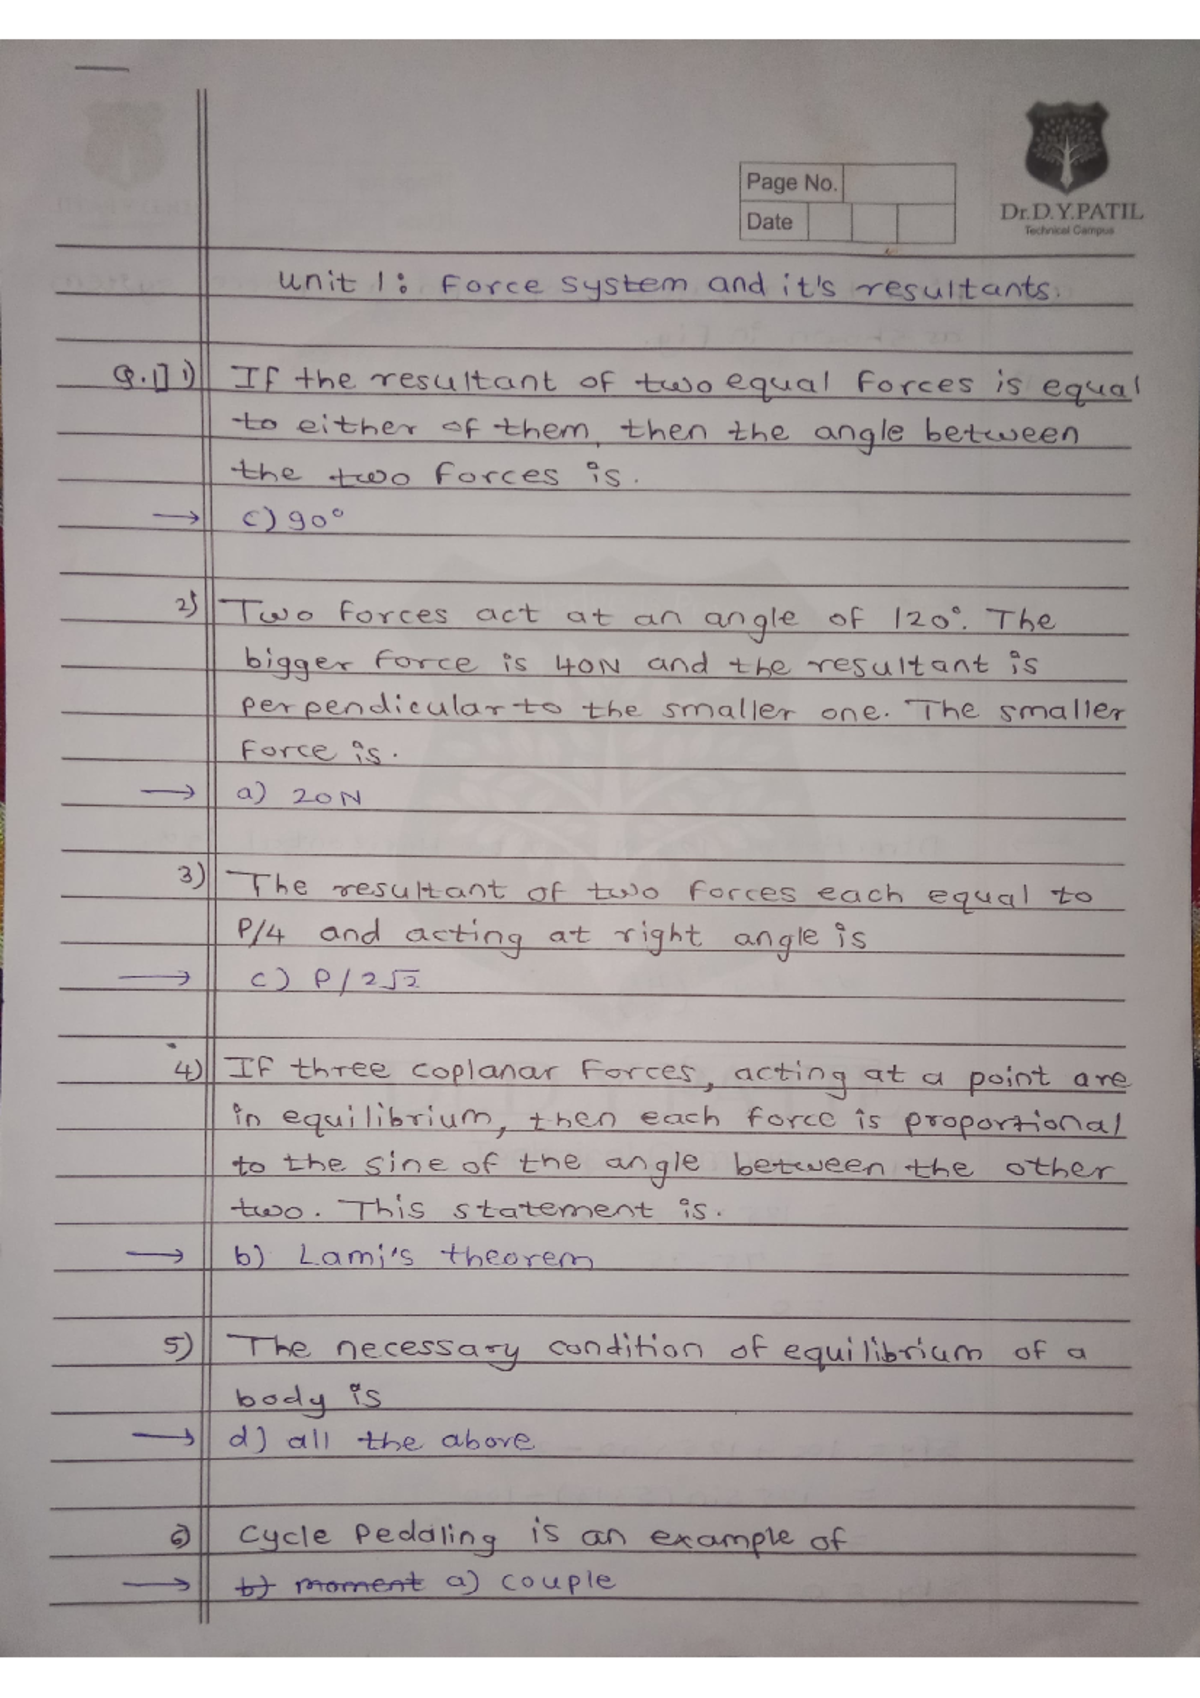 Page No.
Date
Dr.D.Y.PATIL
Technical Campus
Unit 1: Force system and it's resultants.
Q.1] 1) If the resultant of two equal forces is equal
to either of them, then the angle between
the two forces is.
→ c) 90°
2) Two forces act at an angle of 120°. The
bigger force is 40N and the resultant is
perpendicular to the smaller one. The smaller
force is.
→ a) 20N
3) The resultant of two forces each equal to
P/4 and acting at right angle is
→ c) P/2√2
4) If three coplanar forces, acting at a point are
in equilibrium, then each force is proportional
to the sine of the angle between the other
two. This statement is.
→ b) Lami's theorem
5) The necessary condition of equilibrium of a
body is
→ d) all the above
6) Cycle Pedaling is an example of
→ b) moment a) couple